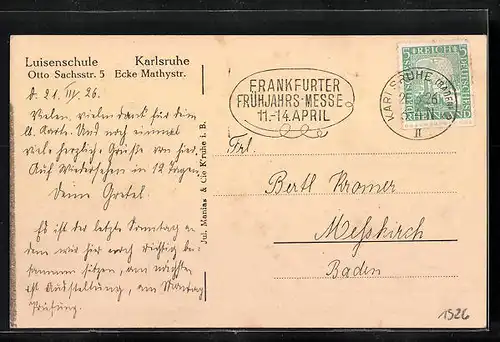 Luisenschule Karlsruhe
Otto Sachsstr. 5 Ecke Mathystr.
d. 21. III. 26.
Vielen, vielen Dank für den
lb. Karte. Und noch einmal
viele herzliche Grüße von hier.
Auf Wiedersehen in 12 Tagen.
Deine Gretel.
Es ist der letzte Sonntag an
dem wir hier noch richtig bei-
sammen sitzen, am nächsten
ist Ausstellung, am Montag
Prüfung.
Jul. Manias & Cie K'ruhe i. B.
FRANKFURTER
FRÜHJAHRS-MESSE
11.-14. APRIL
DEUTSCHES REICH
5 5
KARLSRUHE (BADEN)
II
Frl.
Bertl Kramer
Messkirch
Baden
1926